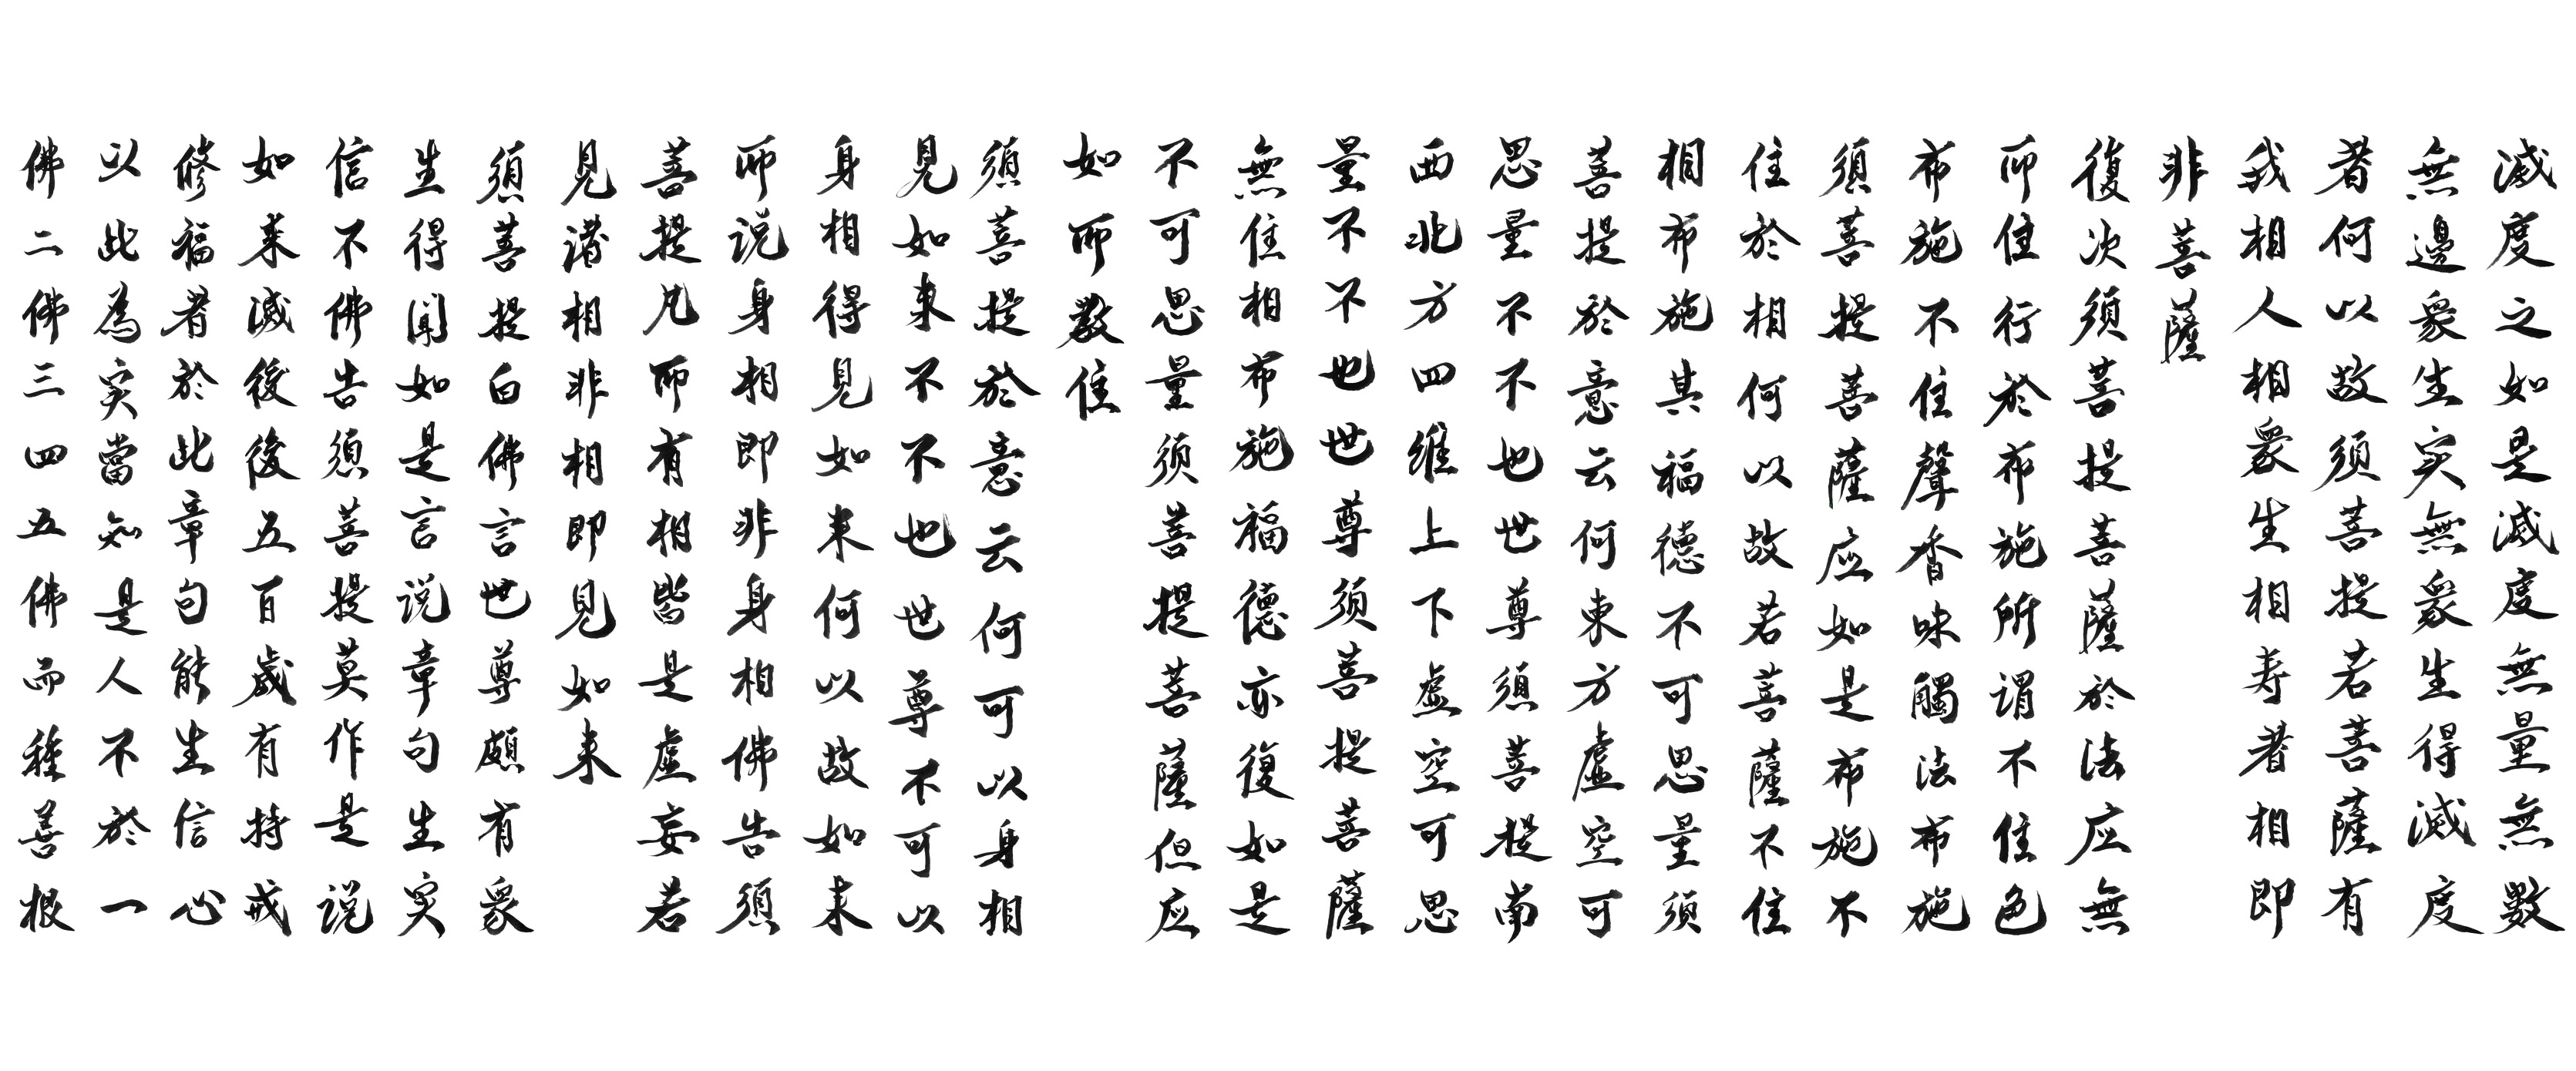 滅度之如是滅度無量無數
無邊衆生实無衆生得滅度
者何以故須菩提若菩薩有
我相人相衆生相寿者相即
非菩薩
復次須菩提菩薩於法应無
所住行於布施所謂不住色
布施不住聲香味觸法布施
須菩提菩薩应如是布施不
住於相何以故若菩薩不住
相布施其福德不可思量須
菩提於意云何東方虛空可
思量不不也世尊須菩提南
西北方四維上下虛空可思
量不不也世尊須菩提菩薩
無住相布施福德亦復如是
不可思量須菩提菩薩但应
如所教住
須菩提於意云何可以身相
見如来不不也世尊不可以
身相得見如来何以故如来
所说身相即非身相佛告須
菩提凡所有相皆是虛妄若
見诸相非相即見如来
須菩提白佛言世尊頗有衆
生得聞如是言说章句生实
信不佛告須菩提莫作是说
如来滅後後五百歲有持戒
修福者於此章句能生信心
以此為实當知是人不於一
佛二佛三四五佛而種善根